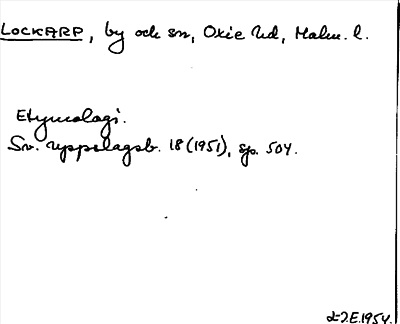 LOCKARP, by och sn, Oxie hd, Malm. l.
Etymologi.
Sv. uppslagsb. 18 (1951), sp. 504.
1954.